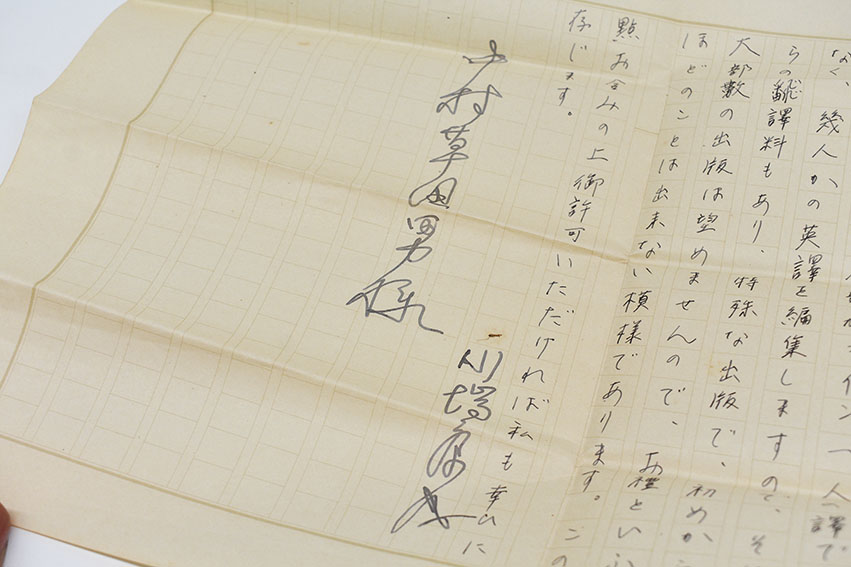 イン一人譯で
なく、幾人かの英譯を編集しますので、そ
らの飜譯料もあり、特殊な出版で、初めか
大部数の出版は望めませんので、お禮といふ
ほどのことは出来ない模様であります。この
點お含みの上御許可いただければ私も幸ひに
存じます。
中村草田男様
川端康成